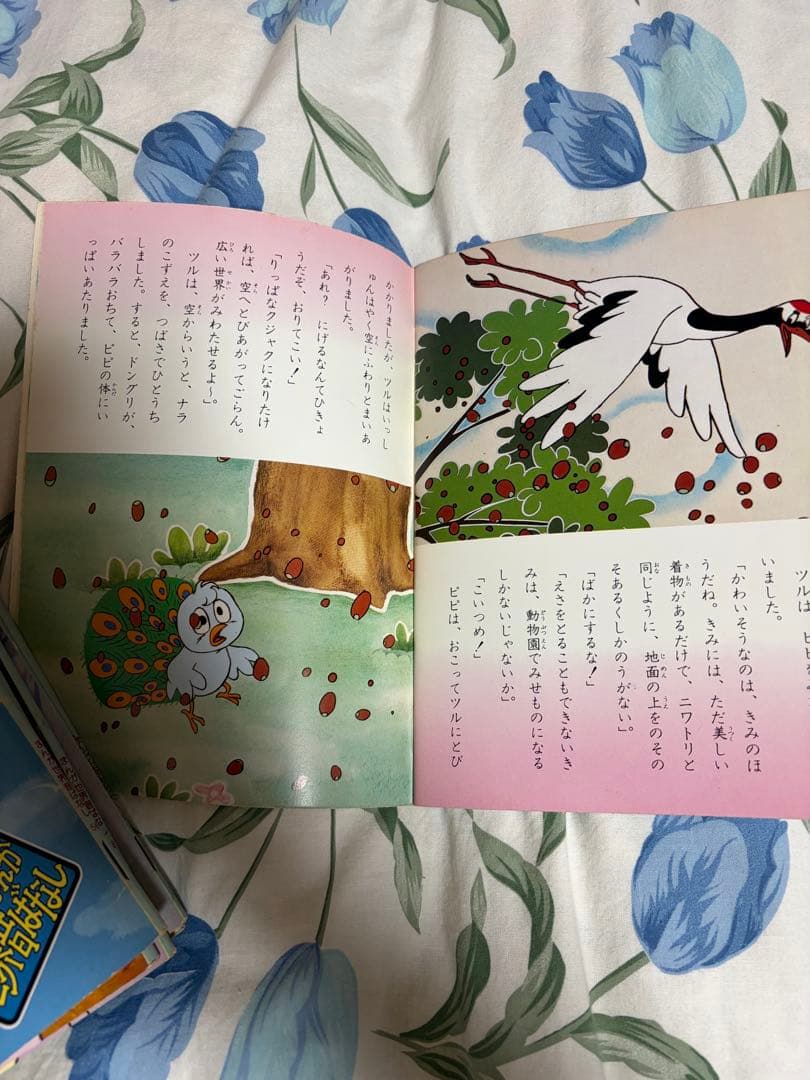 ツルは、ピピを
いました。
「かわいそうなのは、きみのほ
うだね。きみには、ただ美しい
着物があるだけで、ニワトリと
同じように、地面の上をのその
そあるくしかのうがない。」
「ばかにするな！」
「えさをとることもできないき
みは、動物園でみせものになる
しかないじゃないか。」
「こいつめ！」
ピピは、おこってツルにとび
かかりましたが、ツルはいっし
ゅんはやく空にふわりとまいあ
がりました。
「あれ？ にげるなんてひきょ
うだぞ、おりてこい！」
「りっぱなクジャクになりたけ
れば、空へとびあがってごらん。
広い世界がみわたせるよ〜」
ツルは、空からいうと、ナラ
のこずえを、つばさでひとうち
しました。すると、ドングリが、
バラバラおちて、ピピの体にい
っぱいあたりました。
昔ばなし